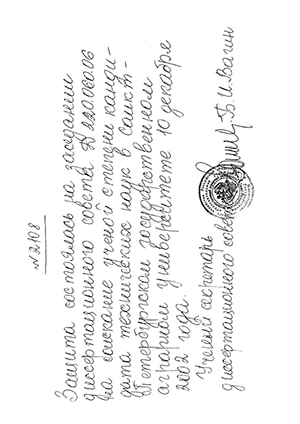 № 2108
Защита состоялась на заседании
диссертационного совета Д 220.060.06
на соискание ученой степени канди-
дата технических наук в Санкт-
Петербургском государственном
аграрном университете 10 декабря
2002 года.
Ученый секретарь
диссертационного совета Б.И. Вагин